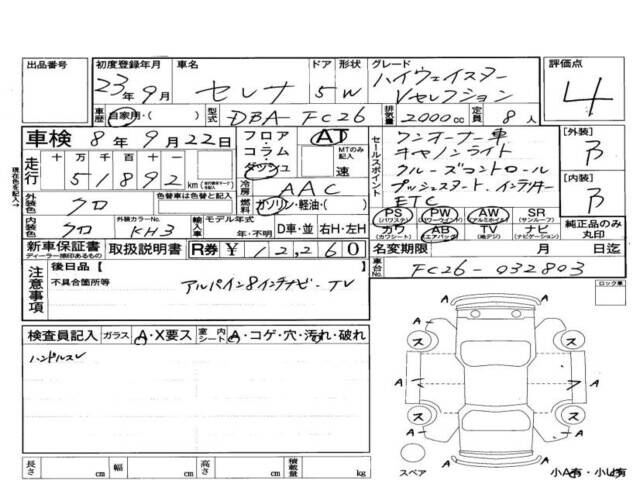 出品番号 初度登録年月 車名 ドア 形状 グレード 評価点
23年9月 セレナ 5 W ハイウェイスター
Vセレクション 4
車歴 自家用・( ) 型式 DBA-FC26 排気量 2000cc 定員 8人
車検 8年9月22日 フロア コラム ダッシュ AT MTのみ記入 速
セールスポイント ワンオーナー車
キセノンライト
クルーズコントロール
プッシュスタート、インテリキー
ETC
[外装]
[内装]
走行 十万千百十一
51892 km
冷房 AAC
外装色 クロ 色替車は色替と記入 燃料 ガソリン・軽油・( )
内装色 クロ 外装カラーNo. KH3 輸入車 モデル年式 年・不明 D車・並 右H・左H
PS (パワステ) PW (パワーウインド) AW (アルミホイル) SR (サンルーフ)
カワ (カワシート) AB (エアバッグ) TV (地デジ) ナビ (ナビゲーション)
純正品のみ丸印
新車保証書 ディーラー捺印あるもの 取扱説明書 R券 ¥ 12,260
名変期限 月 日迄
車台No. FC26-032803
注意事項 後日品【 】
不具合箇所等 アルパイン8インチナビ-TV
ロック車
検査員記入 ガラス A・X要ス 室内シート A・コゲ・穴・汚れ・破れ
ハンドルスレ
A A
ス ス
A A A
ス ス
A A
スペア 小A有・小U有
長さ cm 幅 cm 高さ cm 積載量 kg
現在色を記入→